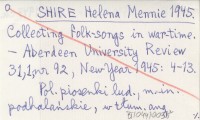 SHIRE Helena Mennie 1945.
Collecting folk-songs in war-time.
- Aberdeen University Review
31,1, nr 92, New Year 1945: 4-13.
Pol. piosenki lud., m.in.
podhalańskie, w tłum. ang.